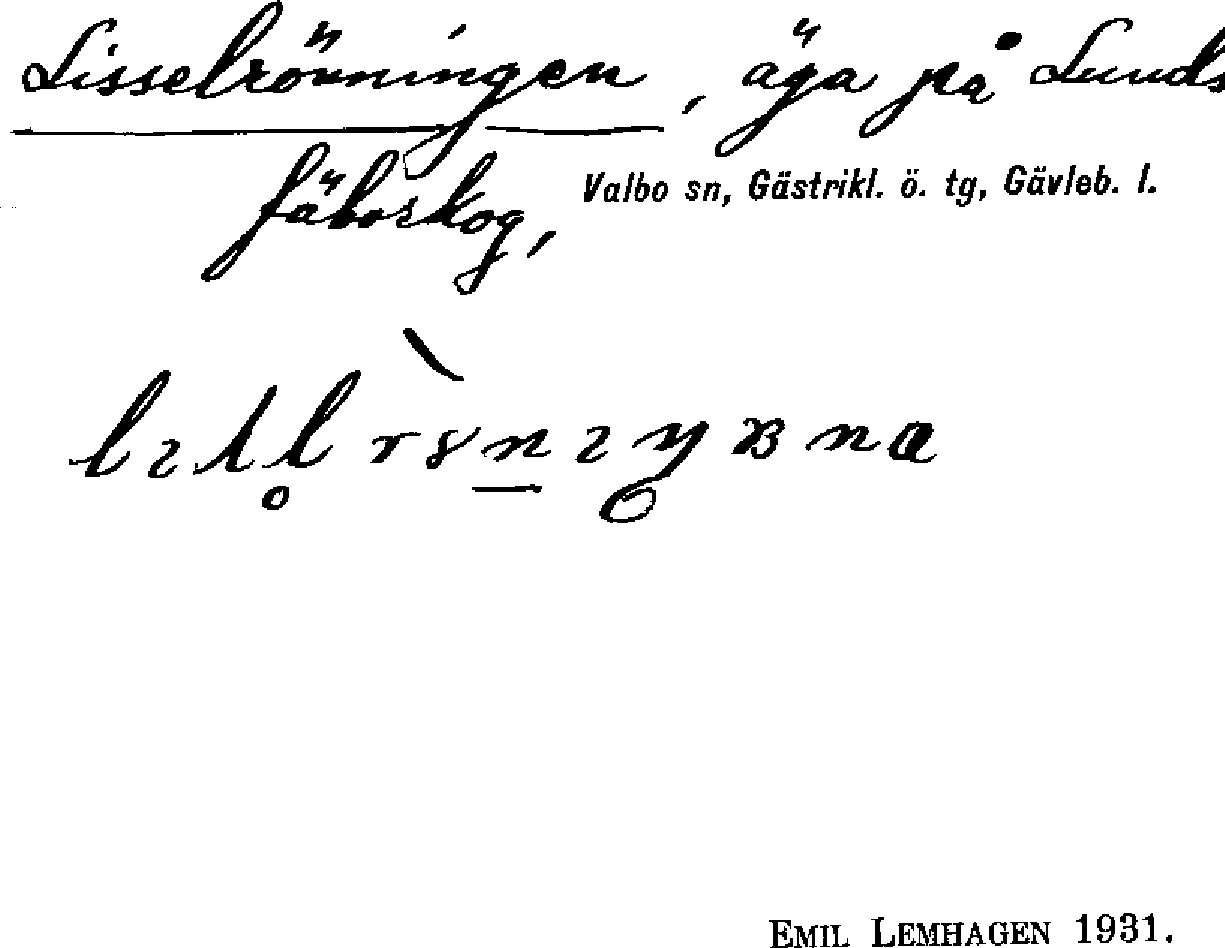 Lisselrönningen, äga på Lunds
fäboskog,
Valbo sn, Gästrikl. ö. tg, Gävleb. l.
EMIL LEMHAGEN 1931.